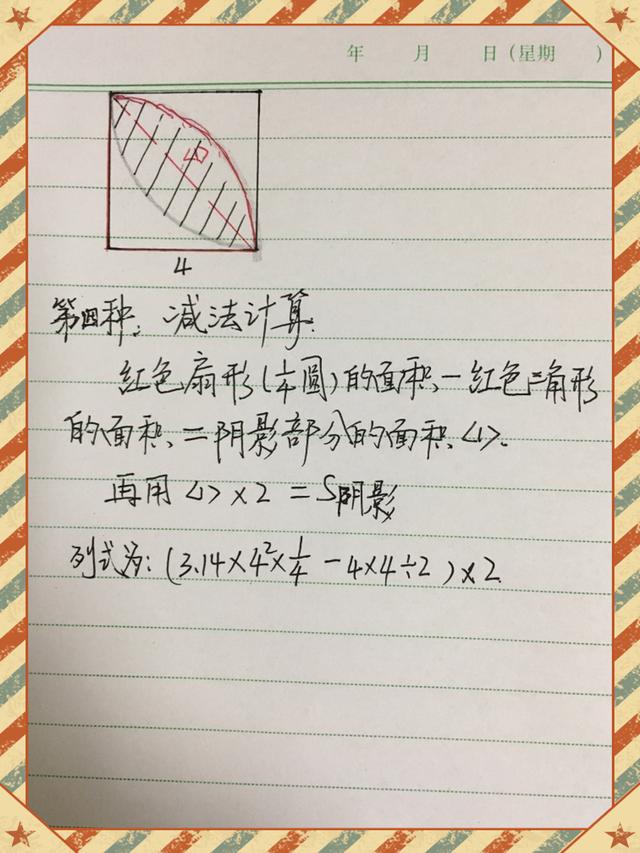 年 月 日(星期 )
(1)
4
第四种:减法计算:
红色扇形(1/4圆)的面积-红色三角形
的面积=阴影部分的面积<1>.
再用<1>×2=S阴影
列式为:(3.14×4²×1/4-4×4÷2)×2